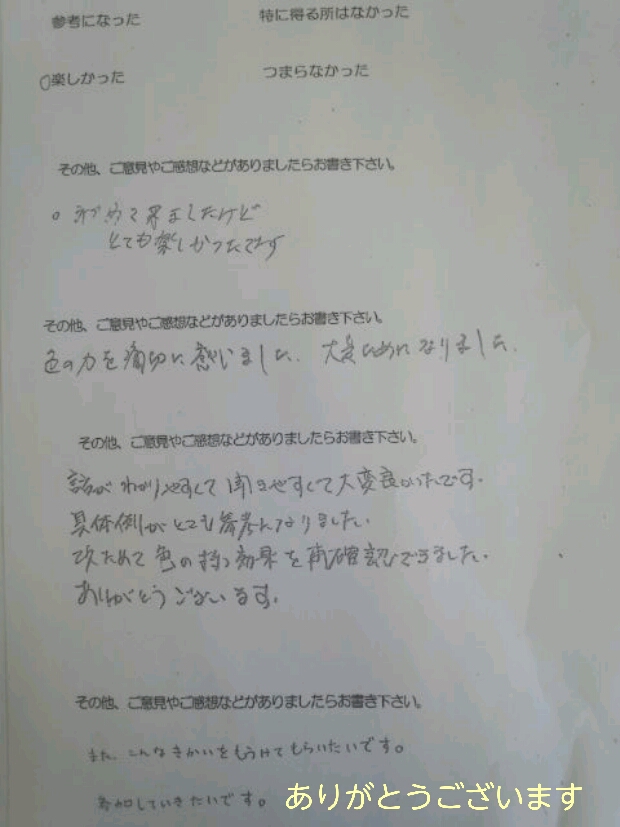 参考になった 特に得る所はなかった
○楽しかった つまらなかった
その他、ご意見やご感想などがありましたらお書き下さい。
○ 初めて来ましたけど
とても楽しかったです
その他、ご意見やご感想などがありましたらお書き下さい。
色の力を痛切に感じました。大変ためになりました。
その他、ご意見やご感想などがありましたらお書き下さい。
話がわかりやすくて聞きやすくて大変良かったです。
具体例がとても参考になりました。
改ためて色の持つ効果を再確認できました。
ありがとうございます。
その他、ご意見やご感想などがありましたらお書き下さい。
また、こんなきかいをもうけてもらいたいです。
参加していきたいです。
ありがとうございます